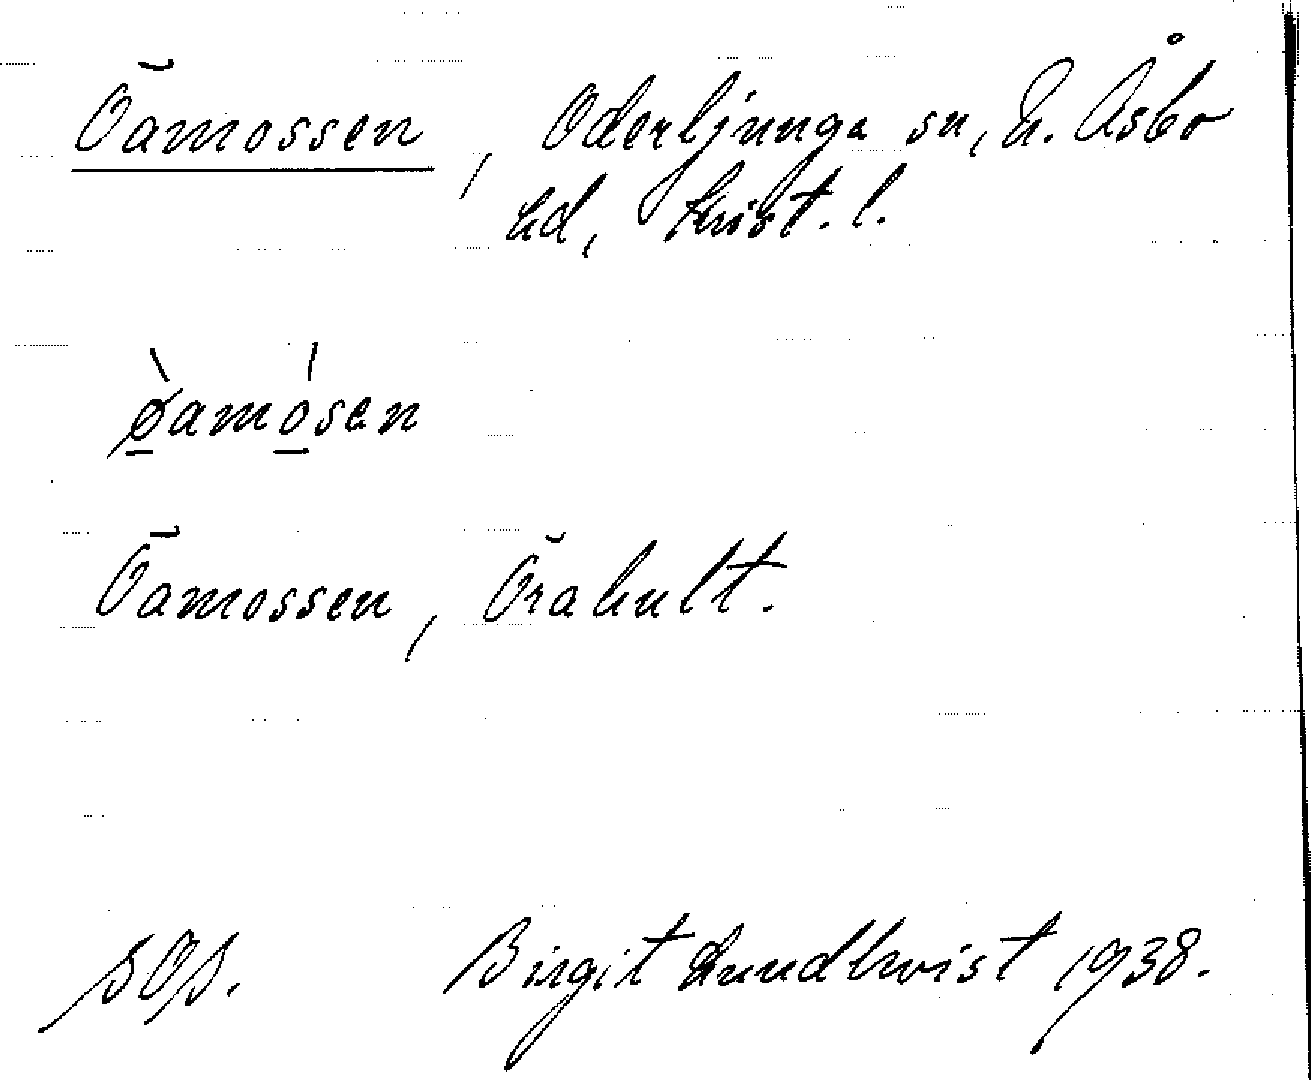 Öamossen, Oderljunga sn, N. Åsbo
hd, Krist. l.
ø̀amósen
Öamossen, Örahult.
sOs.
Birgit Lundkvist 1938.